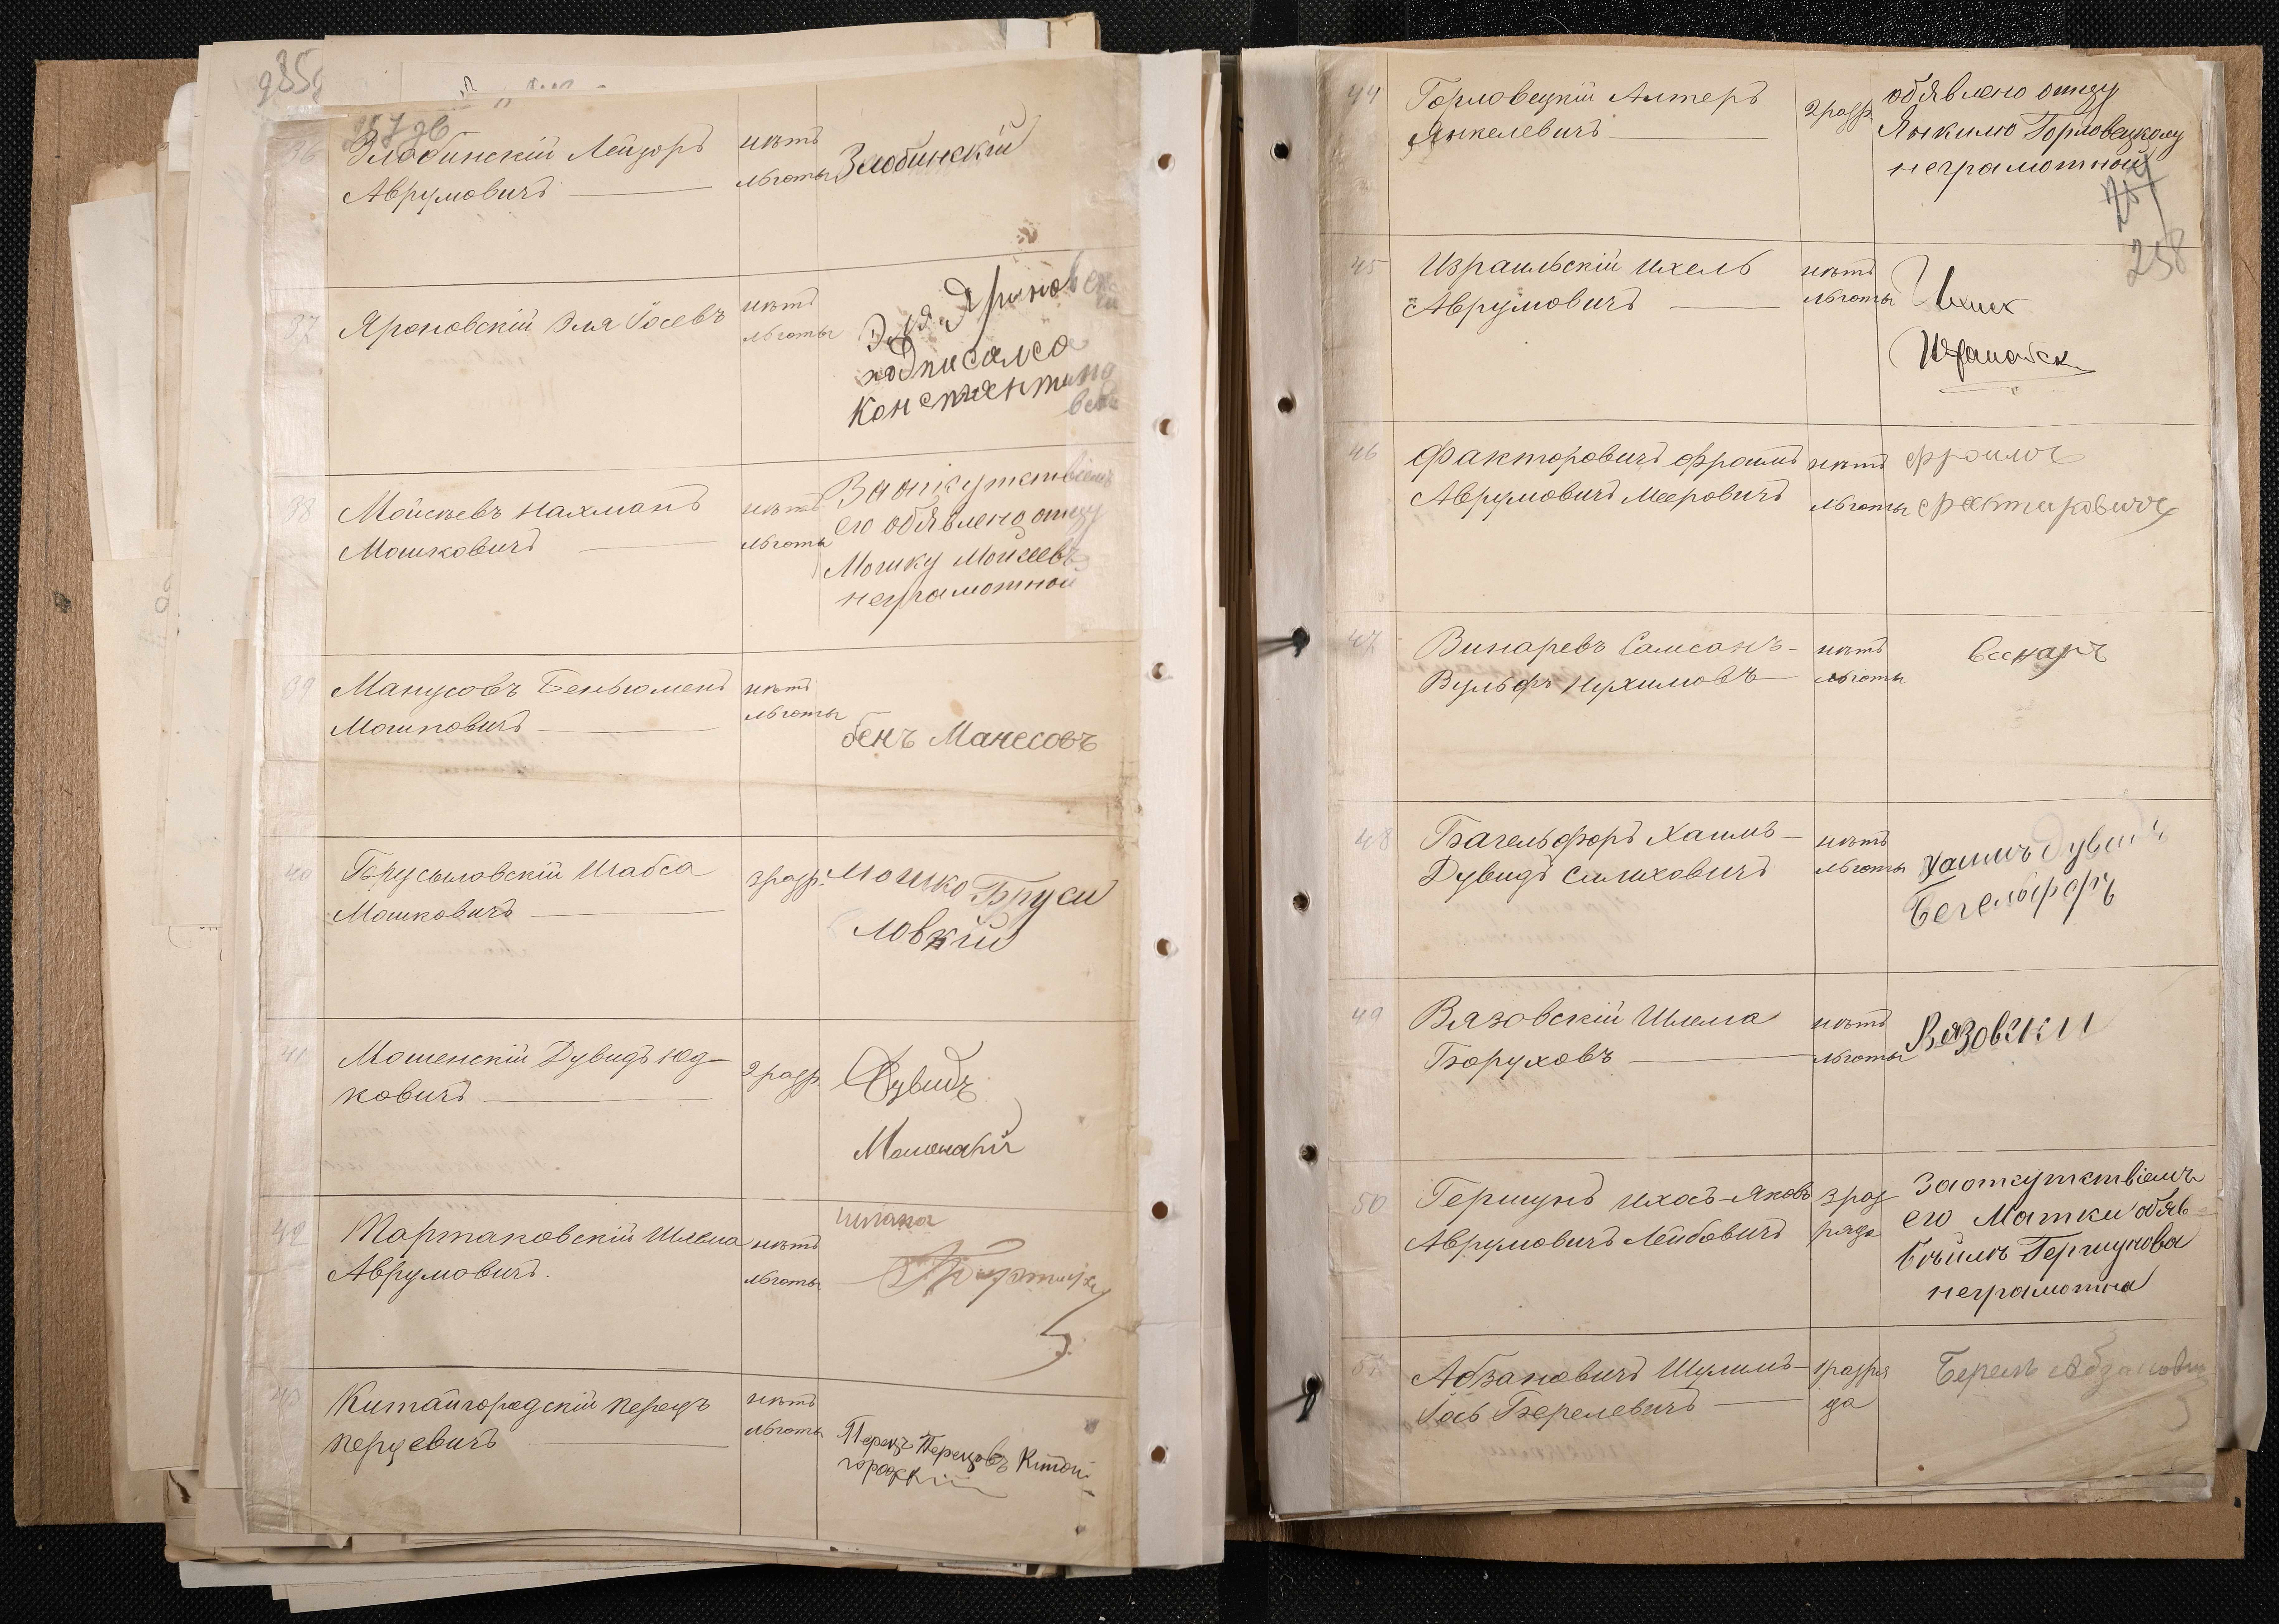 36 Злобинскій Лейзоръ
Аврумовичъ
нѣтъ
льготы
Злобинскій
37 Яроновскій Эля Іосевъ
нѣтъ
льготы
Эля
подписался
38 Мойсѣевъ Нахманъ
Мошковичъ
нѣтъ
льготы
его обявлено отцу
Мошку Мойсеевъ
неграмотной
39 Манусовъ Беньюменъ
Мошковичъ
нѣтъ
льготы
бенъ Манесовъ
40 Брусиловскій Шабса
Мошковичъ
3 разр.
Мошко Bруси
ловкій
41 Мошенскій Дувидъ Юд-
ковичъ
2 разр.
Дувидъ
Мошенскій
42 Тартаковскій Шлема
Аврумовичъ.
нѣтъ
льготы
43 Китайгородскій Перецъ
Перцевичъ
нѣтъ
льготы
Перецъ Перецовъ Китай
44 Горловецкій Алтеръ
Янкелевичъ
2 разр.
обявлено отцу
Янкилю Горловецкому
неграмотной
257
258
45 Израильскій Ихель
Аврумовичъ
нѣтъ
льготы
46 Факторовичъ Фроимъ
Аврумовичъ Мееровичъ
нѣтъ
льготы
47 Винаревъ Самсонъ-
Вульфъ Нухимовъ
нѣтъ
льготы
48 Багельфоръ Хаимъ-
Дувидъ
нѣтъ
льготы
Хаимъ Дувидъ
49 Вязовскій Шлема
Боруховъ
нѣтъ
льготы
Вязовски
50 Гершунъ Ихось-Яковъ
Аврумовичъ Лейбовичъ
3 раз
ряда
его Матки обяв
Гершунова
неграмотна
51 Абзановичъ Шулимъ-
Іось Берелевичъ
1 разря
да